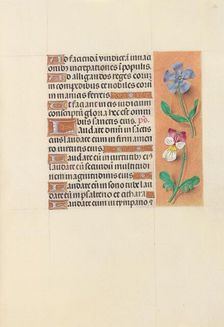 Ad faciendā vindictā in na
onibus increpationes i populis.
Ad alligandos reges eorū
in compedibus et nobiles eorū
in manicis ferreis
Ut faciant in eis iudicium
conscriptū gloria hec est omni
bus sanctis eius. ps.
Laudate dnm in sanctis
eius laudate eum in firmamen
to virtutis eius
Laudate eū in virtutibus ei
laudate eū secundū multitudi
nem magnitudinis eius
Laudate eū in sono tube lau
date eū in psalterio et cithara
Laudate eum in tympano et